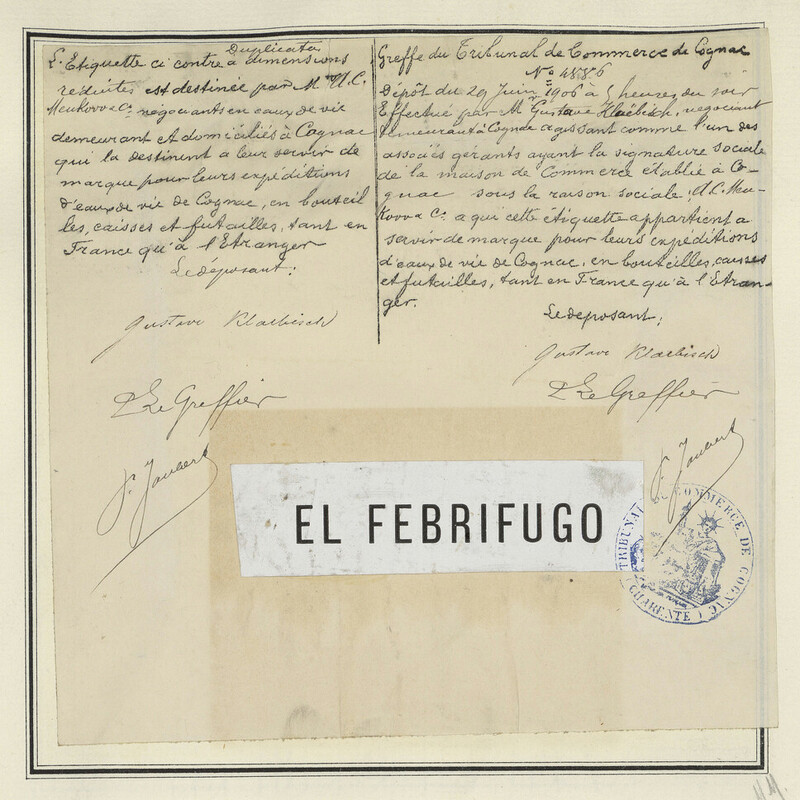 Duplicata
L'Etiquette ci contre à dimensions
réduites est destinée par Mrs A.C.
Meukow & Co. négociants en eaux de vie
demeurant et domiciliés à Cognac
qui la destinent à leur servir de
marque pour leurs expéditions
d'eaux de vie de Cognac, en bouteil
les, caisses et futailles, tant en
France qu'à l'Etranger
Le déposant:
Gustave Klaebisch
Le Greffier
Greffe du Tribunal de Commerce de Cognac
No 4886
Dépôt du 29 Juin 1906 à 5 heures du soir
Effectué par Mr Gustave Klaebisch, négociant
demeurant à Cognac agissant comme l'un des
associés gérants ayant la signature sociale
de la maison de Commerce établie à Co-
gnac sous la raison sociale: A.C. Meu-
kow & Co. à qui cette étiquette appartient a
servir de marque pour leurs expéditions
d'eaux de vie de Cognac, en bouteilles, caisses
et futailles, tant en France qu'à l'Etran-
ger.
Le déposant:
Gustave Klaebisch
Le Greffier
EL FEBRIFUGO
TRIBUNAL DE COMMERCE DE COGNAC
(CHARENTE)